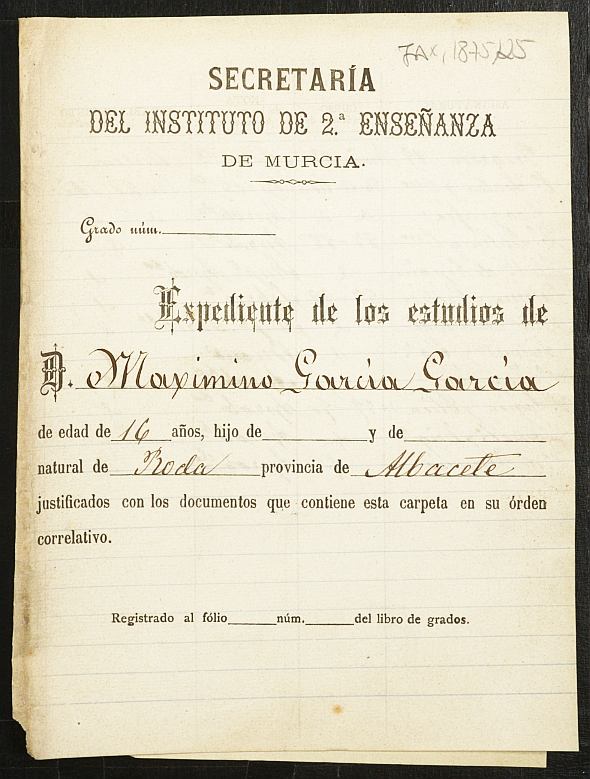 JAX, 1875/25
SECRETARÍA
DEL INSTITUTO DE 2.ª ENSEÑANZA
DE MURCIA.
Grado núm.
Expediente de los estudios de
D. Maximino García García
de edad de 16 años, hijo de y de
natural de Roda provincia de Albacete
justificados con los documentos que contiene esta carpeta en su órden
correlativo.
Registrado al fólio núm. del libro de grados.